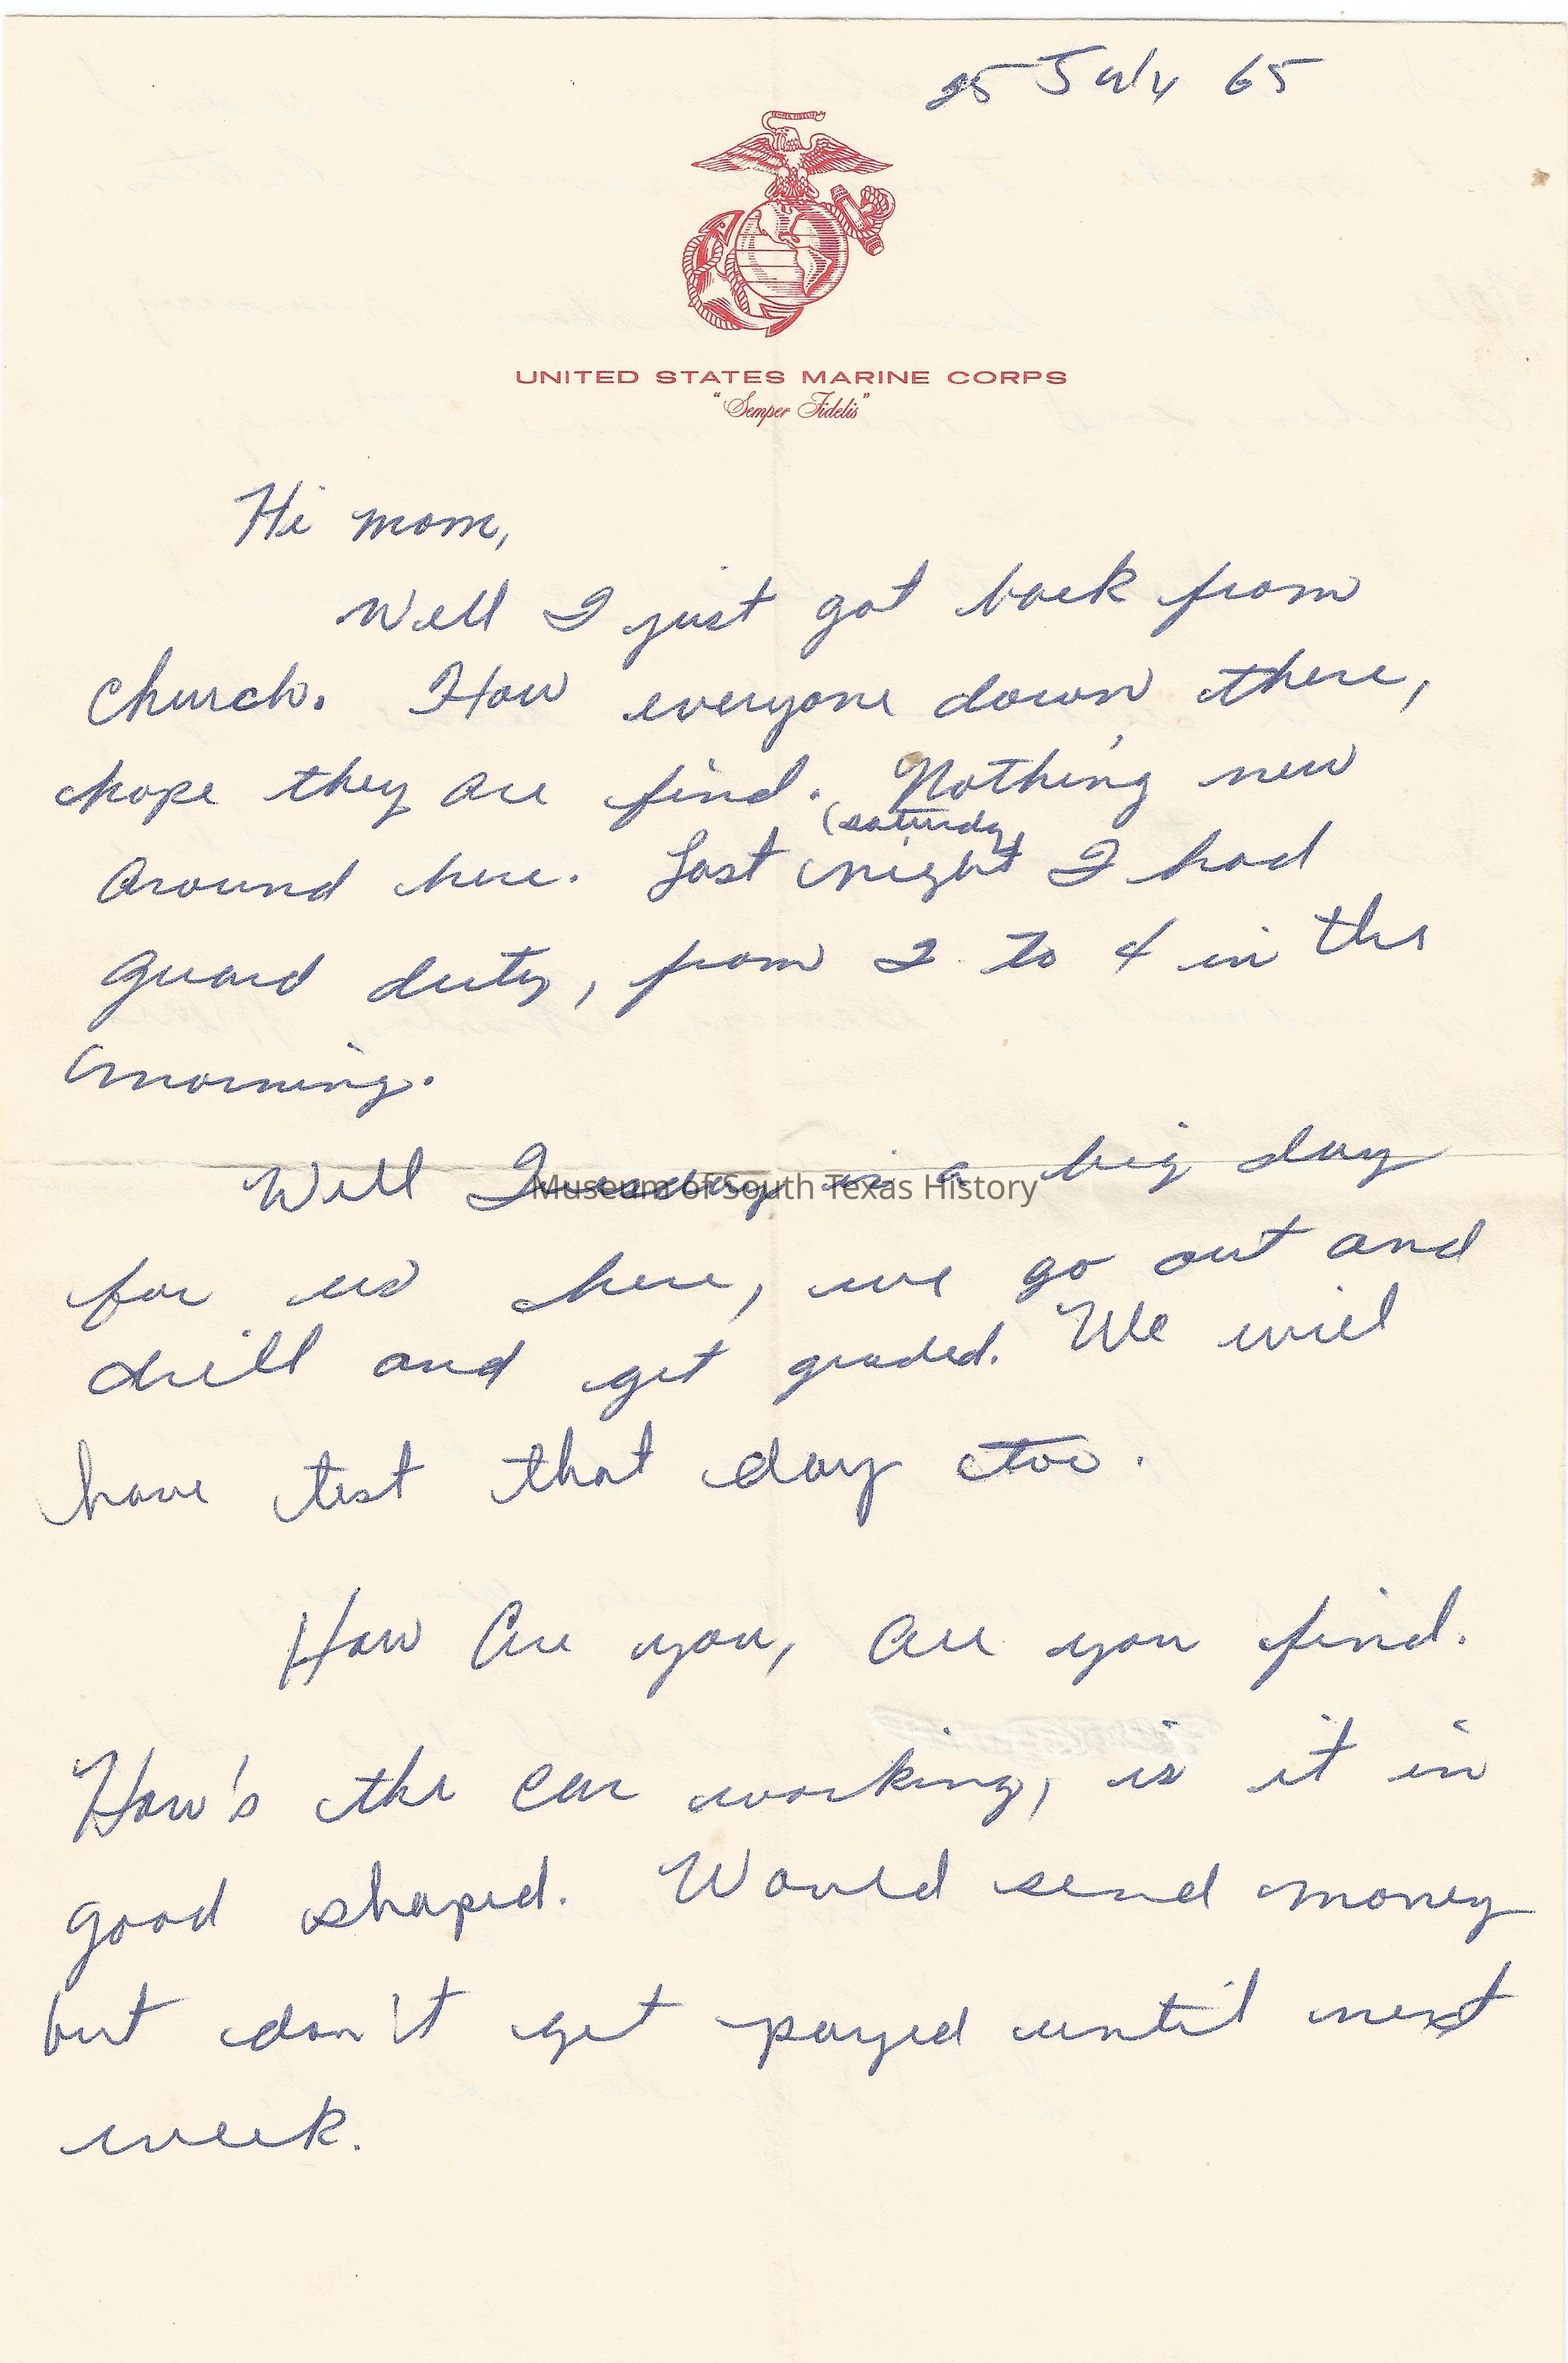 25 July 65
SEMPER FIDELIS
UNITED STATES MARINE CORPS
"Semper Fidelis"
Hi mom,
Well I just got back from
church. How everyone down there,
hope they are find. Nothing new
(saturday)
around here. Last night I had
guard duty, from 2 to 4 in the
morning.
Well Tuesday is a big day
Museum of South Texas History
for us here, we go out and
drill and get graded. We will
have test that day too.
How are you, are you find.
How's the car working, is it in
good shaped. Would send money
but don't get payed until next
week.